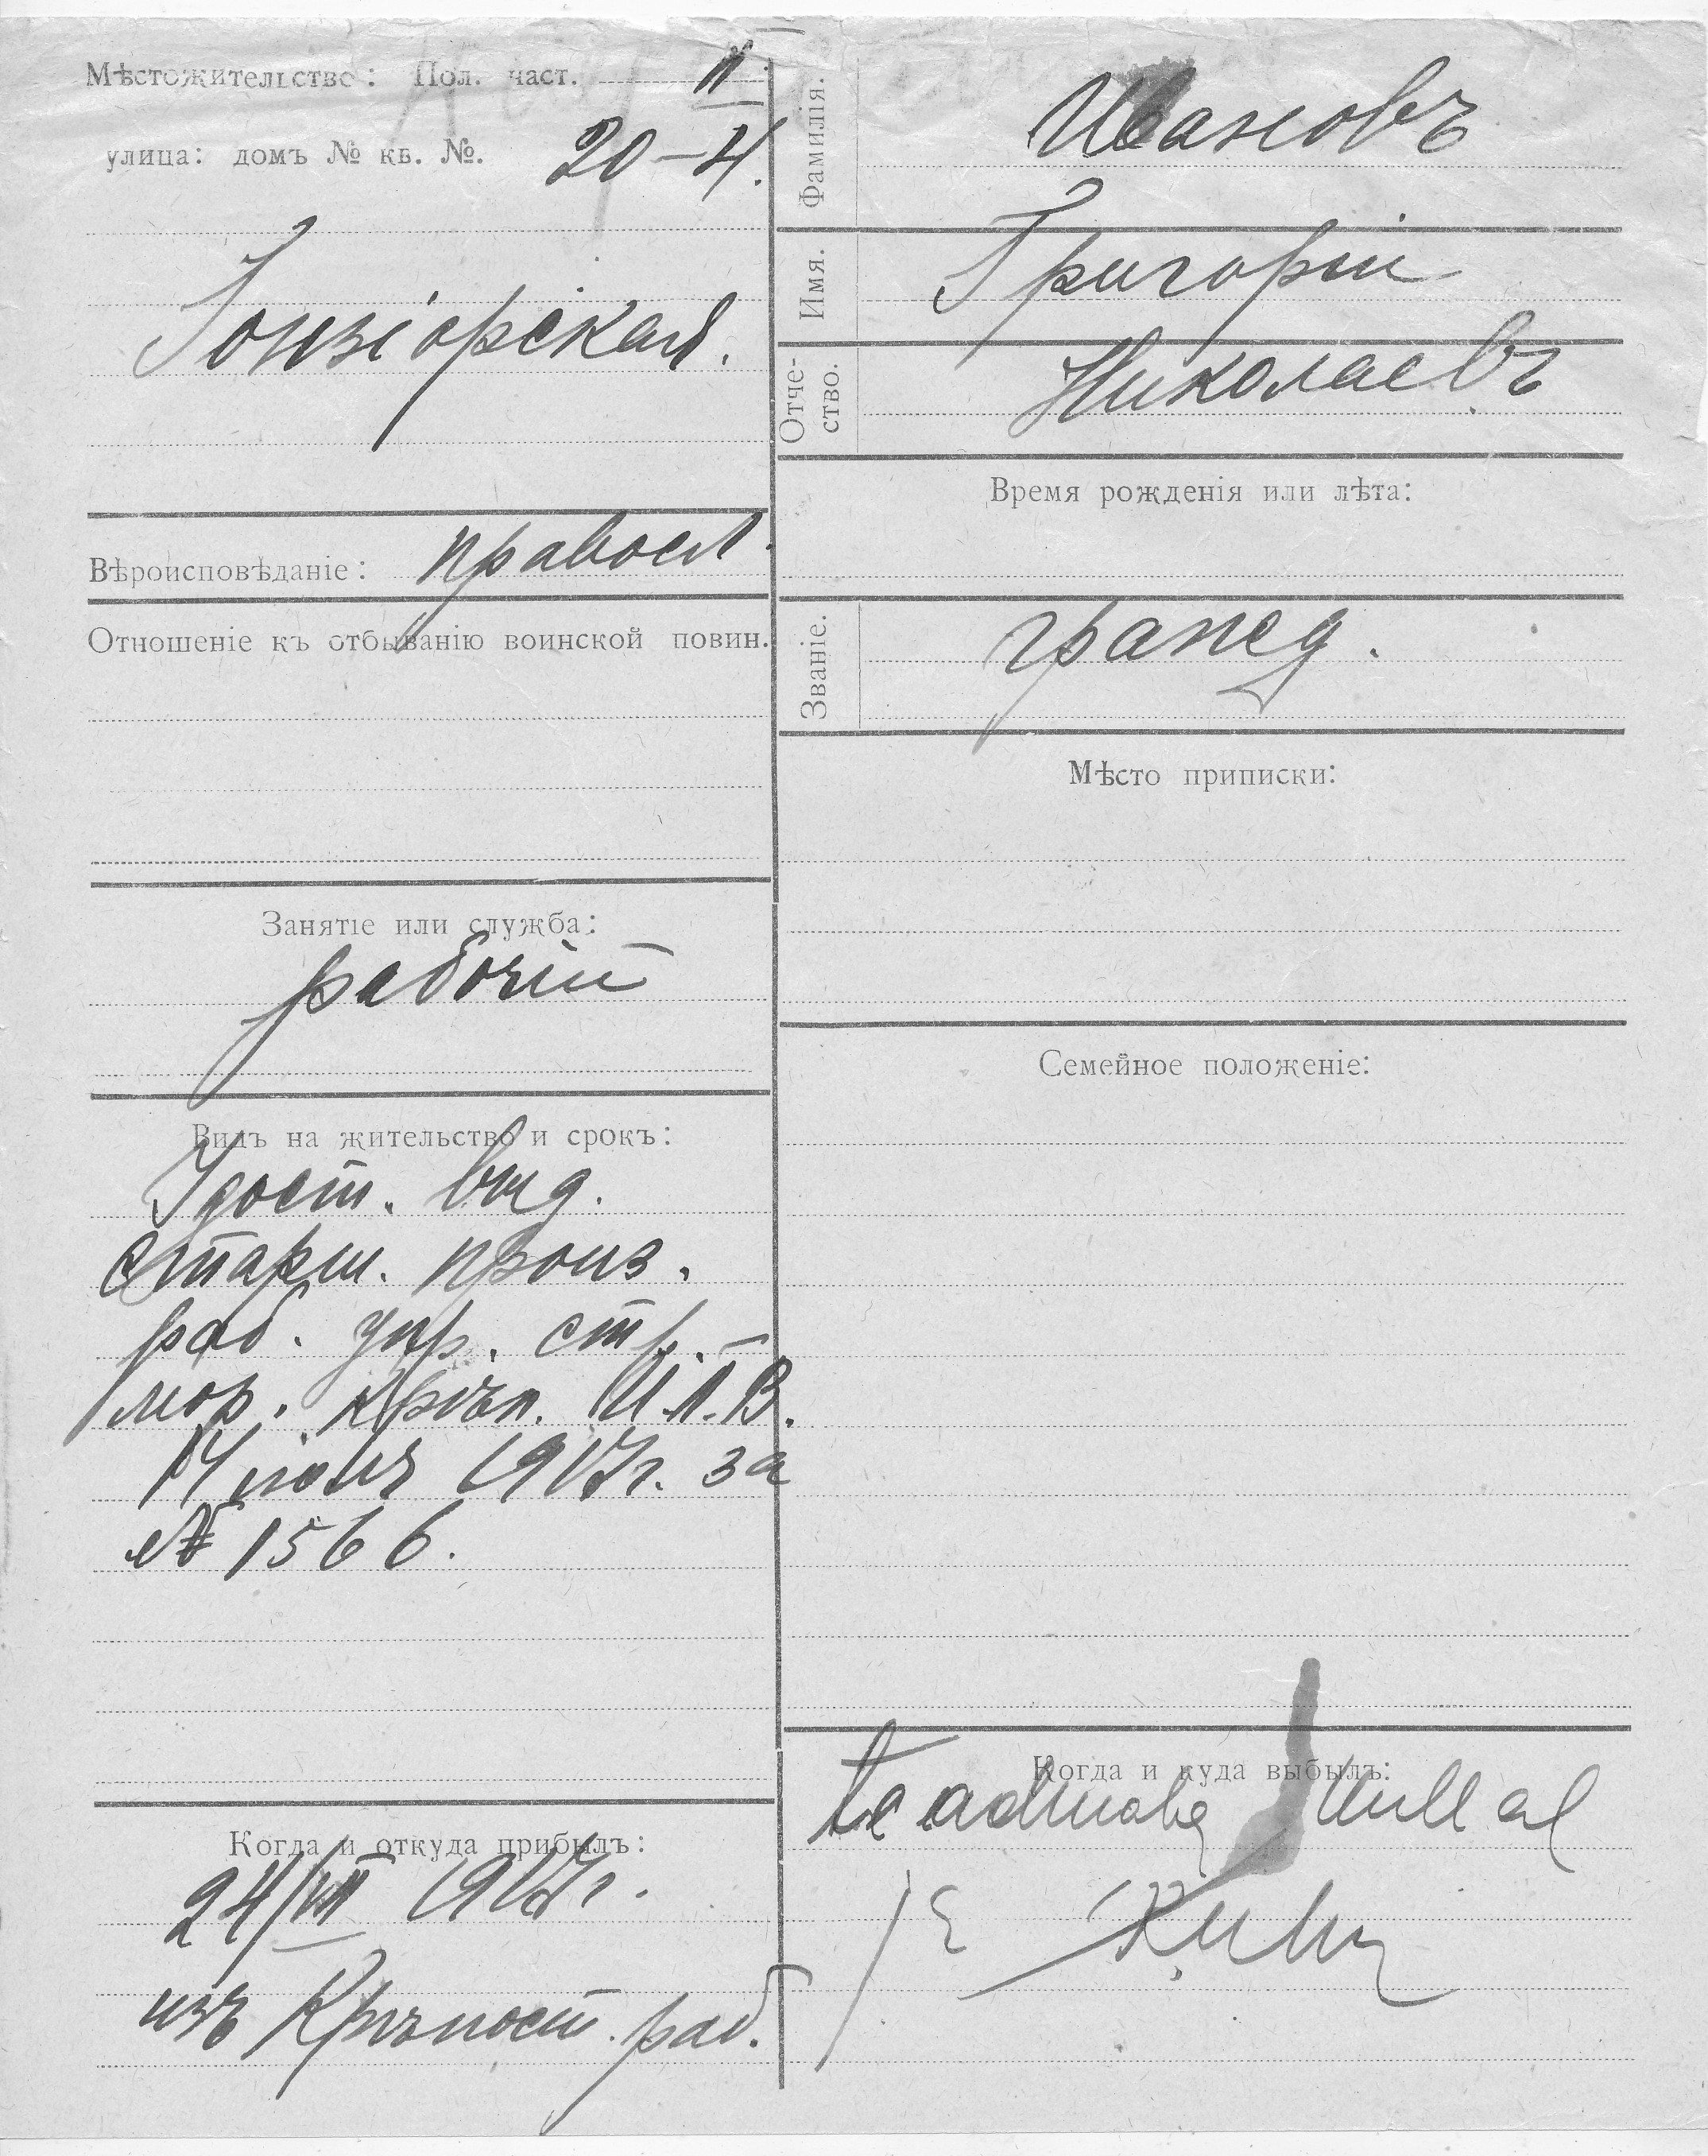 Мѣстожительство: Пол. част. II
улица: домъ № кв. №. 20–4.
Гонзіорская.
Вѣроисповѣданіе: правосл.
Отношеніе къ отбыванію воинской повин.
Занятіе или служба:
рабочій
Видъ на жительство и срокъ:
Удост. выд.
старш. произ.
раб. упр. стр.
мор. крѣп. И.П.В.
14 1917г. за
№ 1566.
Когда и откуда прибылъ:
24/VII 1917г.
изъ Крѣпост. раб.
Фамилія. Ивановъ
Имя. Григорій
Отче-
ство. Николаевъ
Время рожденія или лѣта:
Званіе. гражд.
Мѣсто приписки:
Семейное положеніе:
Когда и куда выбылъ:
teadmata